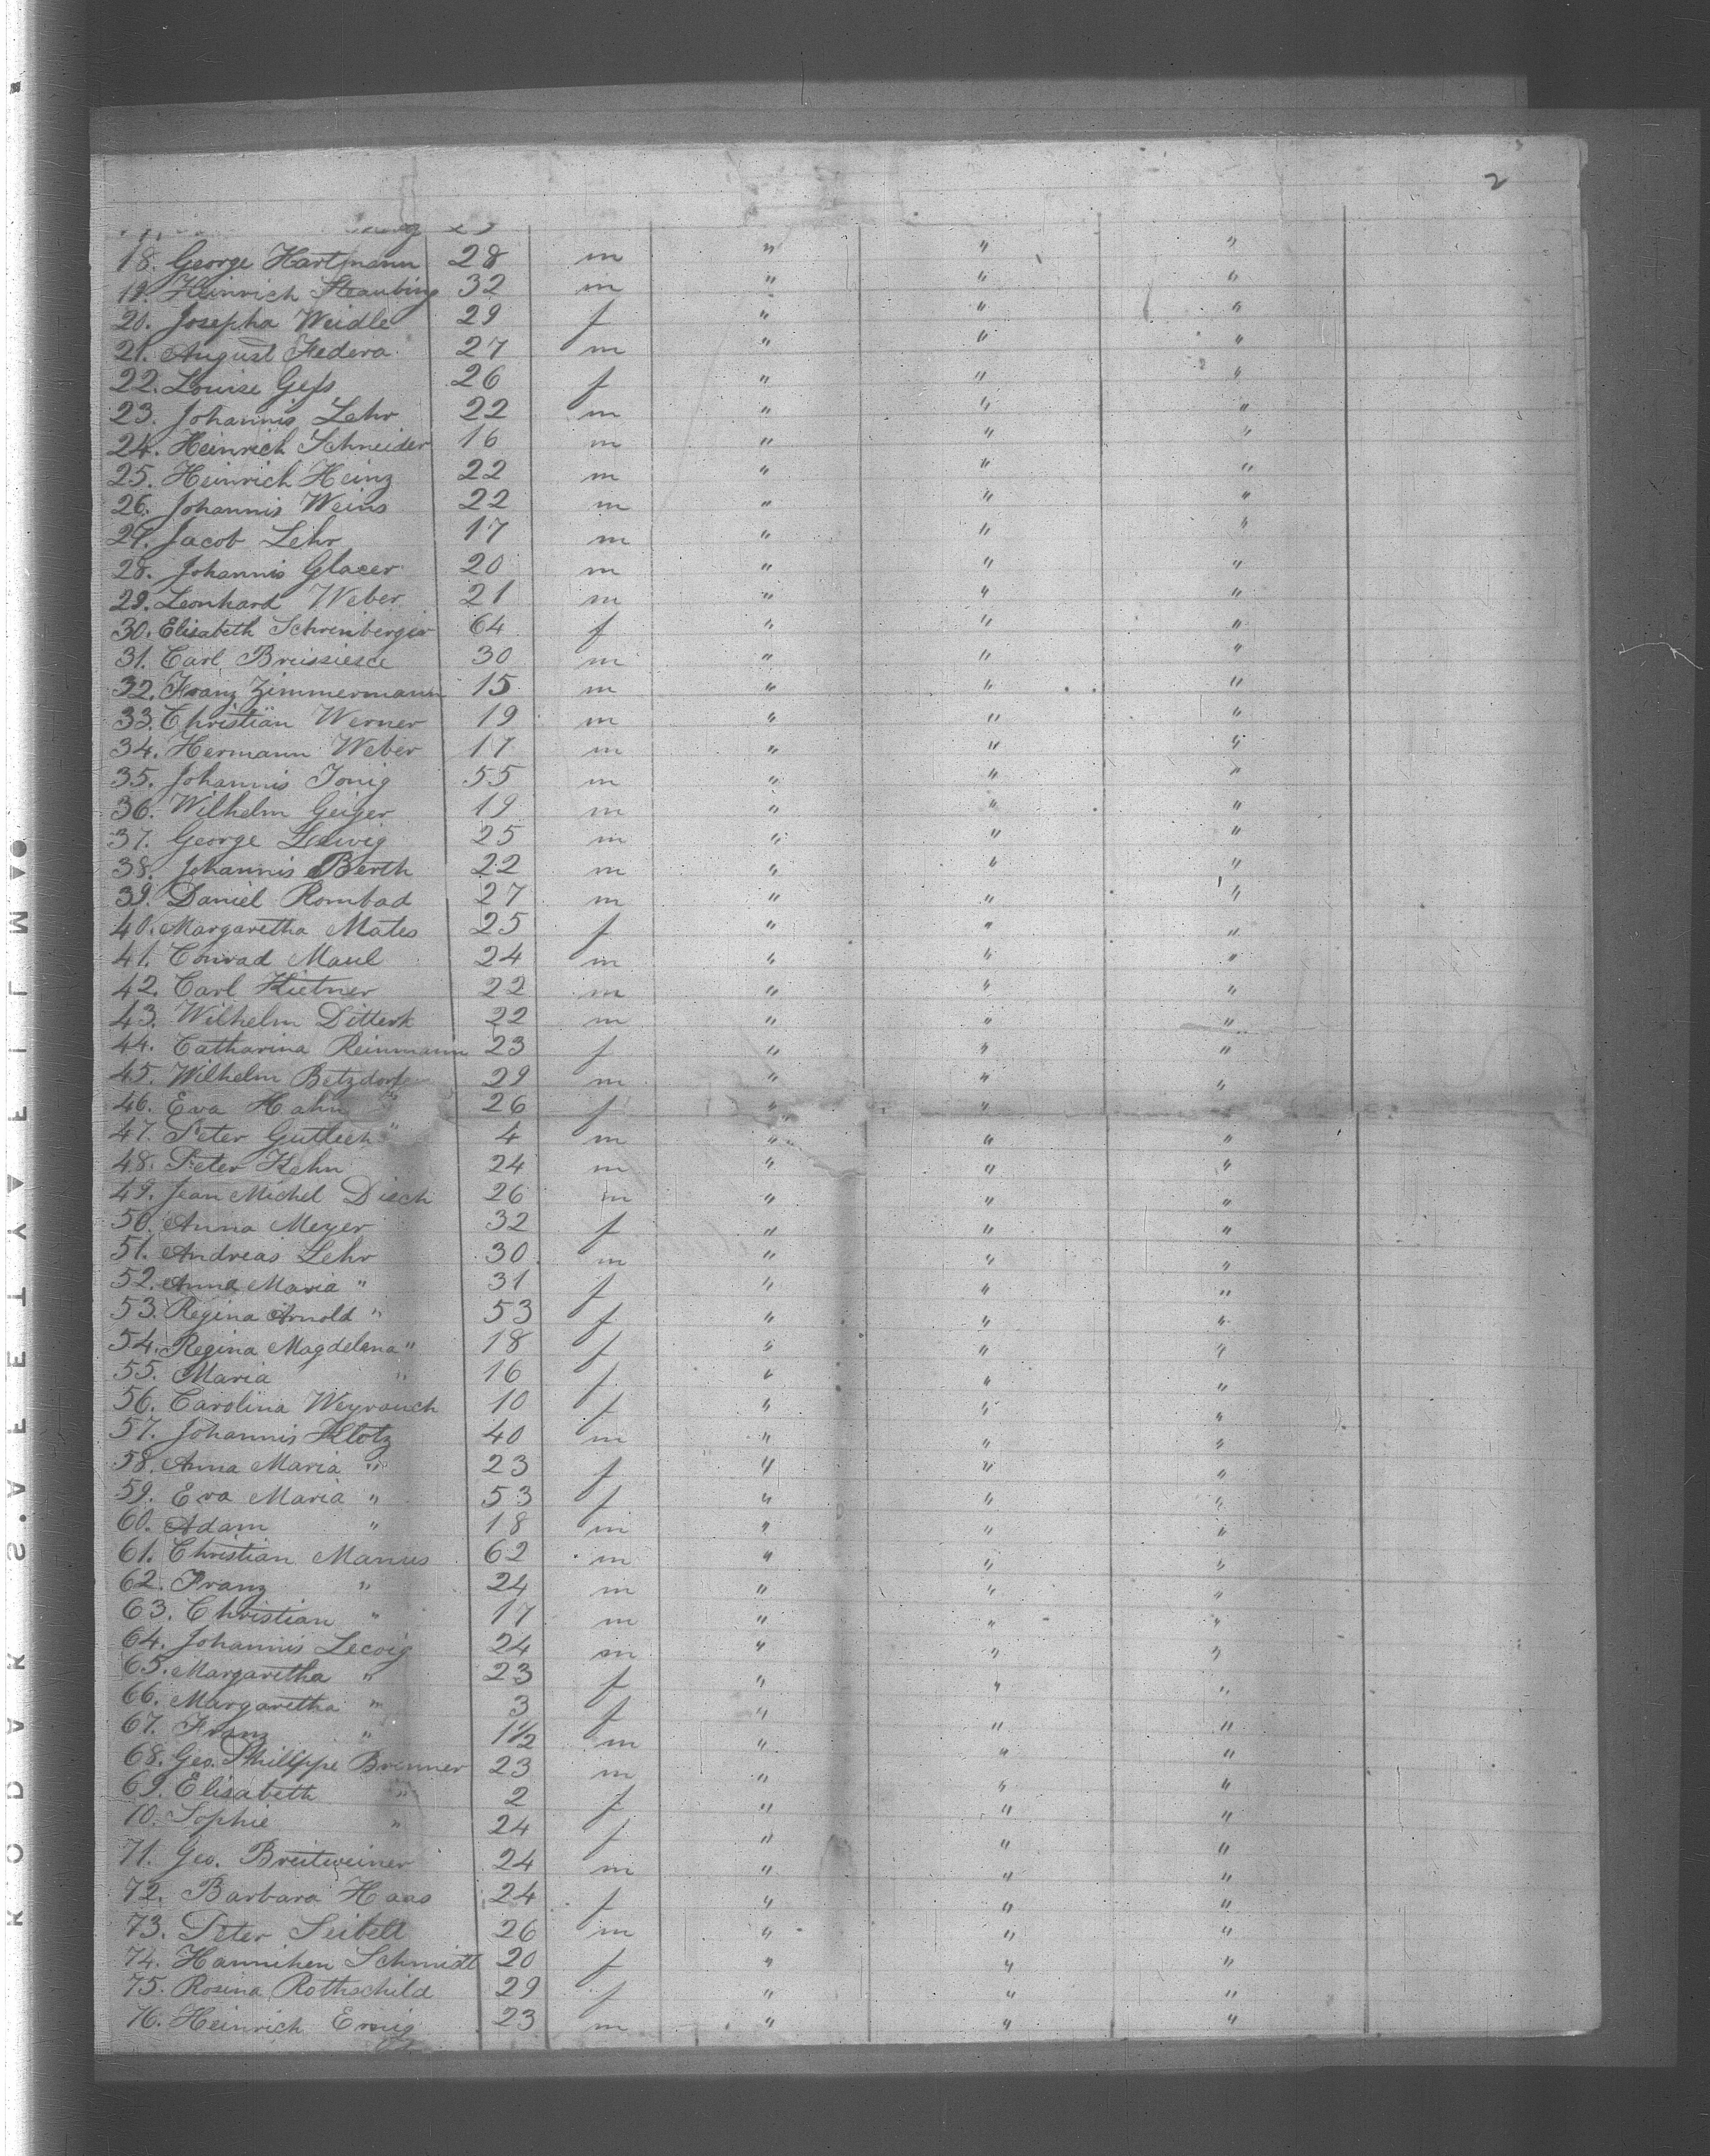 2
18. George Hartmann 28 m " " "
19. Heinrich Staubing 32 m " " "
20. Josepha Weidle 29 f " " "
21. August Federa 27 m " " "
22. Louise Gess 26 f " " "
23. Johannis Lehr 22 m " " "
24. Heinrich Schneider 16 m " " "
25. Heinrich Heinz 22 m " " "
26. Johannis Weins 22 m " " "
27. Jacob Lehr 17 m " " "
28. Johannis Glacer 20 m " " "
29. Leonhard Weber 21 m " " "
30. Elisabeth Schrenberger 64 f " " "
31. Carl 30 m " " "
32. Franz Zimmermann 15 m " " "
33. Christian Werner 19 m " " "
34. Hermann Weber 17 m " " "
35. Johannis Jonig 55 m " " "
36. Wilhelm Geiger 19 m " " "
37. George Ledwig 25 m " " "
38. Johannis Berth 22 m " " "
39. Daniel Rombad 27 m " " "
40. Margaretha Mates 25 f " " "
41. Conrad Maul 24 m " " "
42. Carl Kietner 22 m " " "
43. Wilhelm Ditterk 22 m " " "
44. Catharina Reinmann 23 f " " "
45. Wilhelm Betzdorf 29 m " " "
46. Eva Hahn " 26 f " "
47. Peter Gutlech " 4 m " " "
48. Peter Kehn 24 m " " "
49. Jean Michel Disch 26 m " " "
50. Anna Meyer 32 f " " "
51. Andreas Lehr 30 m " " "
52. Anna Maria " 31 f " " "
53. Regina Arnold " 53 f " " "
54. Regina Magdelena " 18 f " " "
55. Maria " 16 f " " "
56. Carolina Weyrauch 10 f " " "
57. Johannis Klotz 40 m " " "
58. Anna Maria " 23 f " " "
59. Eva Maria " 53 f " " "
60. Adam " 18 m " " "
61. Christian Manus 62 m " " "
62. Franz " 24 m " " "
63. Christian " 17 m " " "
64. Johannis Lecvig 24 m " " "
65. Margaretha " 23 f " " "
66. Margaretha " 3 f " " "
67. Franz " 1½ m " " "
68. Geo. Philippe Brenner 23 m " " "
69. Elisabeth " 2 f " " "
70. Sophie " 24 f " " "
71. Geo. Breitweiner 24 m " " "
72. Barbara Haas 24 f " " "
73. Peter Seibelt 26 m " " "
74. Hannihen Schmidt 20 f " " "
75. Rosina Rothschild 29 f " " "
76. Heinrich Emig 23 m " " "
KODAK S.AFETY FILM